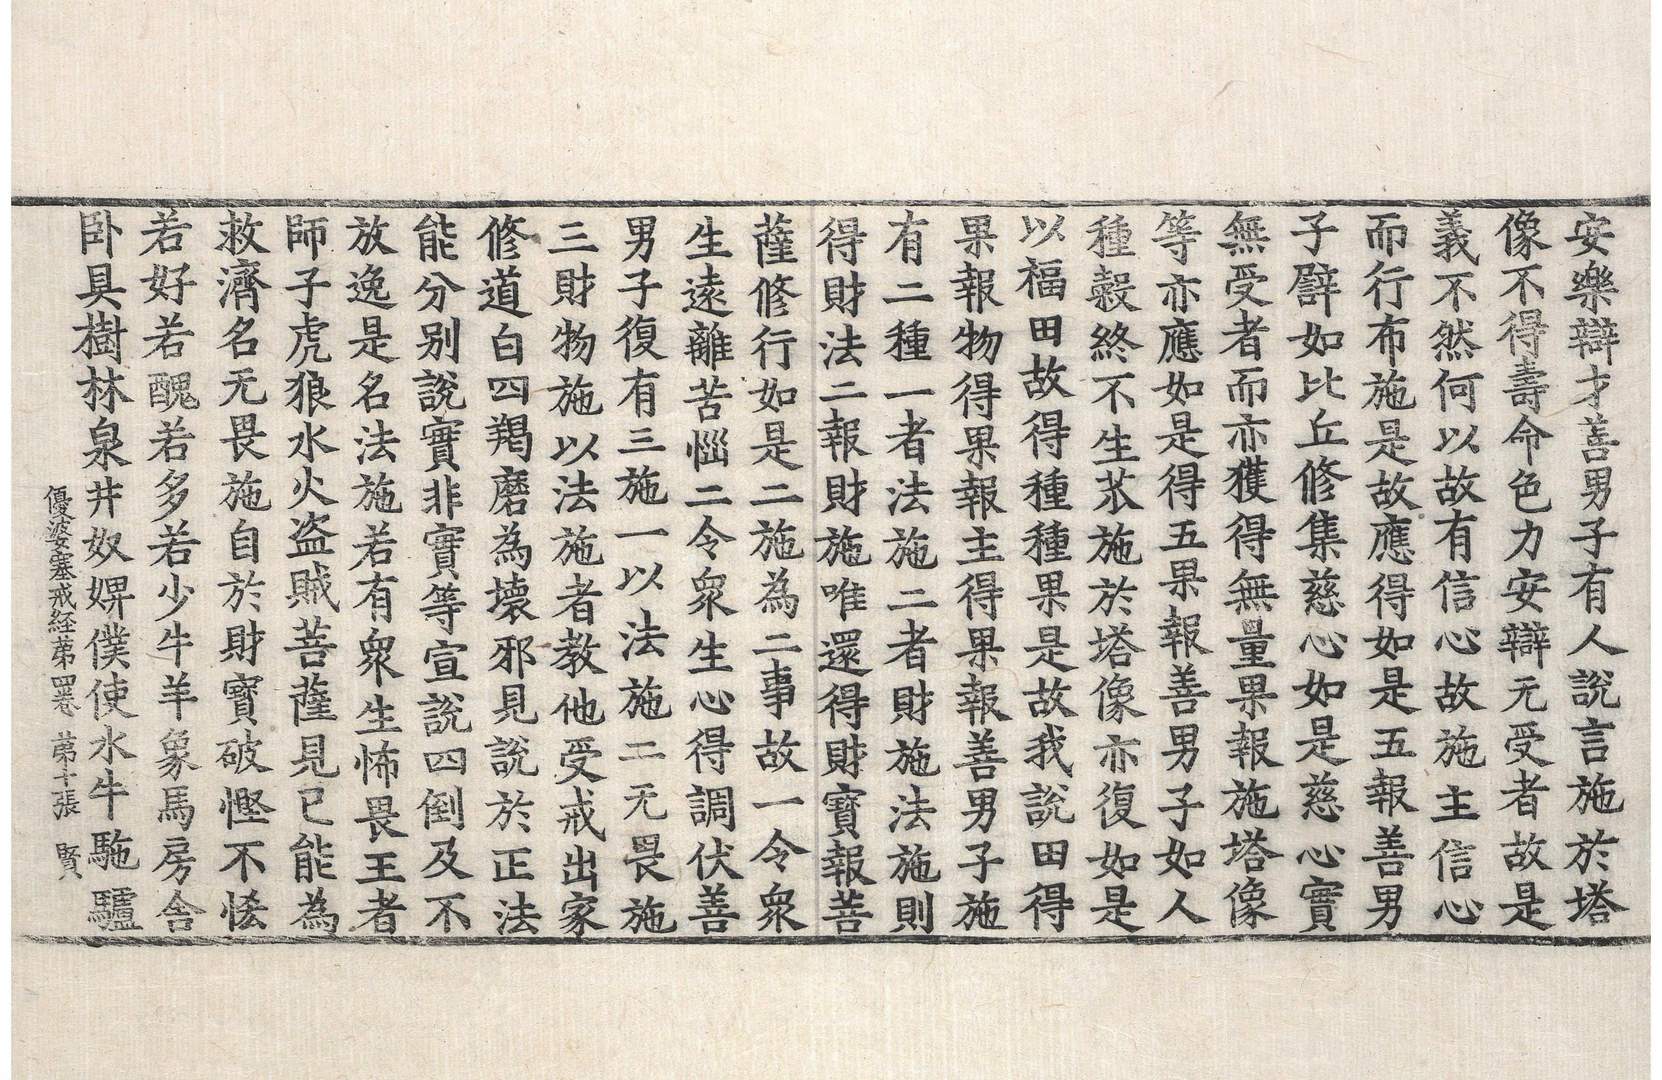 安樂辯才善男子有人說言施於塔
像不得壽命色力安辯无受者故是
義不然何以故有信心故施主信心
而行布施是故應得如是五報善男
子譬如比丘修集慈心如是慈心實
無受者而亦獲得無量果報施塔像
等亦應如是得五果報善男子如人
種穀終不生苽施於塔像亦復如是
以福田故得種種果是故我說田得
果報物得果報主得果報善男子施
有二種一者法施二者財施法施則
得財法二報財施唯還得財寶報菩
薩修行如是二施為二事故一令眾
生遠離苦惱二令眾生心得調伏善
男子復有三施一以法施二无畏施
三財物施以法施者教他受戒出家
修道白四羯磨為壞邪見說於正法
能分別說實非實等宣說四倒及不
放逸是名法施若有眾生怖畏王者
師子虎狼水火盜賊菩薩見已能為
救濟名无畏施自於財寶破慳不悋
若好若醜若多若少牛羊象馬房舍
卧具樹林泉井奴婢僕使水牛駞驢
優婆塞戒経苐四卷 苐十張 賢